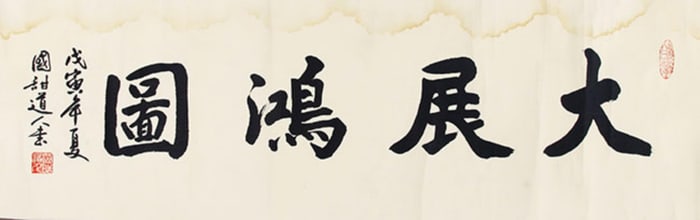 大展鴻圖
戊寅年夏
國甜道人業